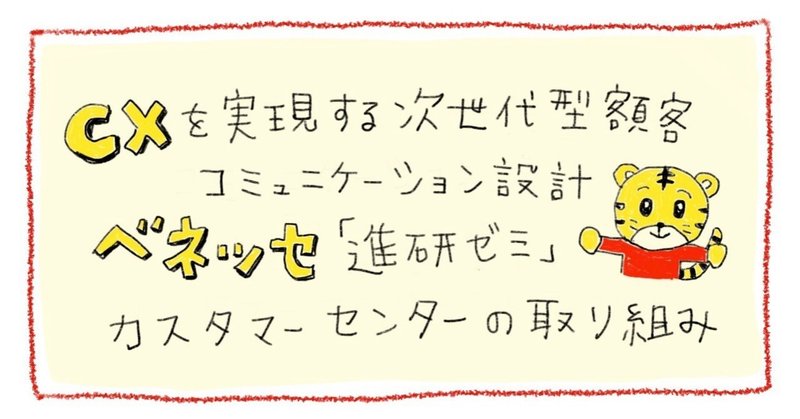 CXを実現する次世代型額客
コミュニケーション設計
ベネッセ「進研ゼミ」
カスタマーセンターの取り組み